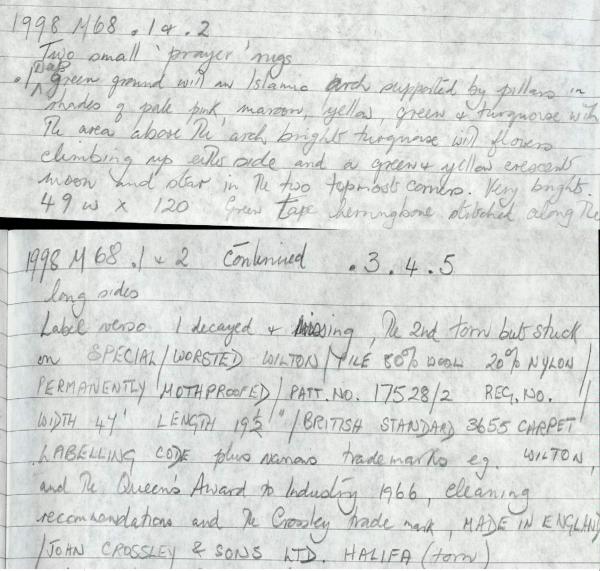 1998 M68 .1 & .2
Two small 'prayer' rugs
.1 Dark Green ground with an Islamic arch supported by pillars in
shades of pale pink, maroon, yellow, green & turquoise with
The area above The arch, bright turquoise with flowers
climbing up either side and a green & yellow crescent
moon and star in The two topmost corners. Very bright.
49 w x 120 Green Tape herringbone stitched along The
1998 M 68 .1 & 2 Continued .3.4.5
long sides
Label verso 1 decayed & missing, The 2nd torn but stuck
on SPECIAL/WORSTED WILTON/PILE 80% WOOL 20% NYLON/
PERMANENTLY/MOTHPROOFED/PATT.NO. 17528/2 REG.NO.
WIDTH 47" LENGTH 19½"/BRITISH STANDARD 3655 CARPET
LABELLING CODE plus various trademarks eg. WILTON,
and The Queen's Award to Industry 1966, cleaning
recommendations and The Crossley trade mark, MADE IN ENGLAND
/JOHN CROSSLEY & SONS LTD. HALIFA (torn)